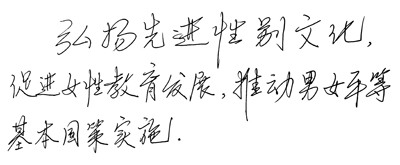 弘扬先进性别文化,
促进女性教育发展,推动男女平等
基本国策实施.